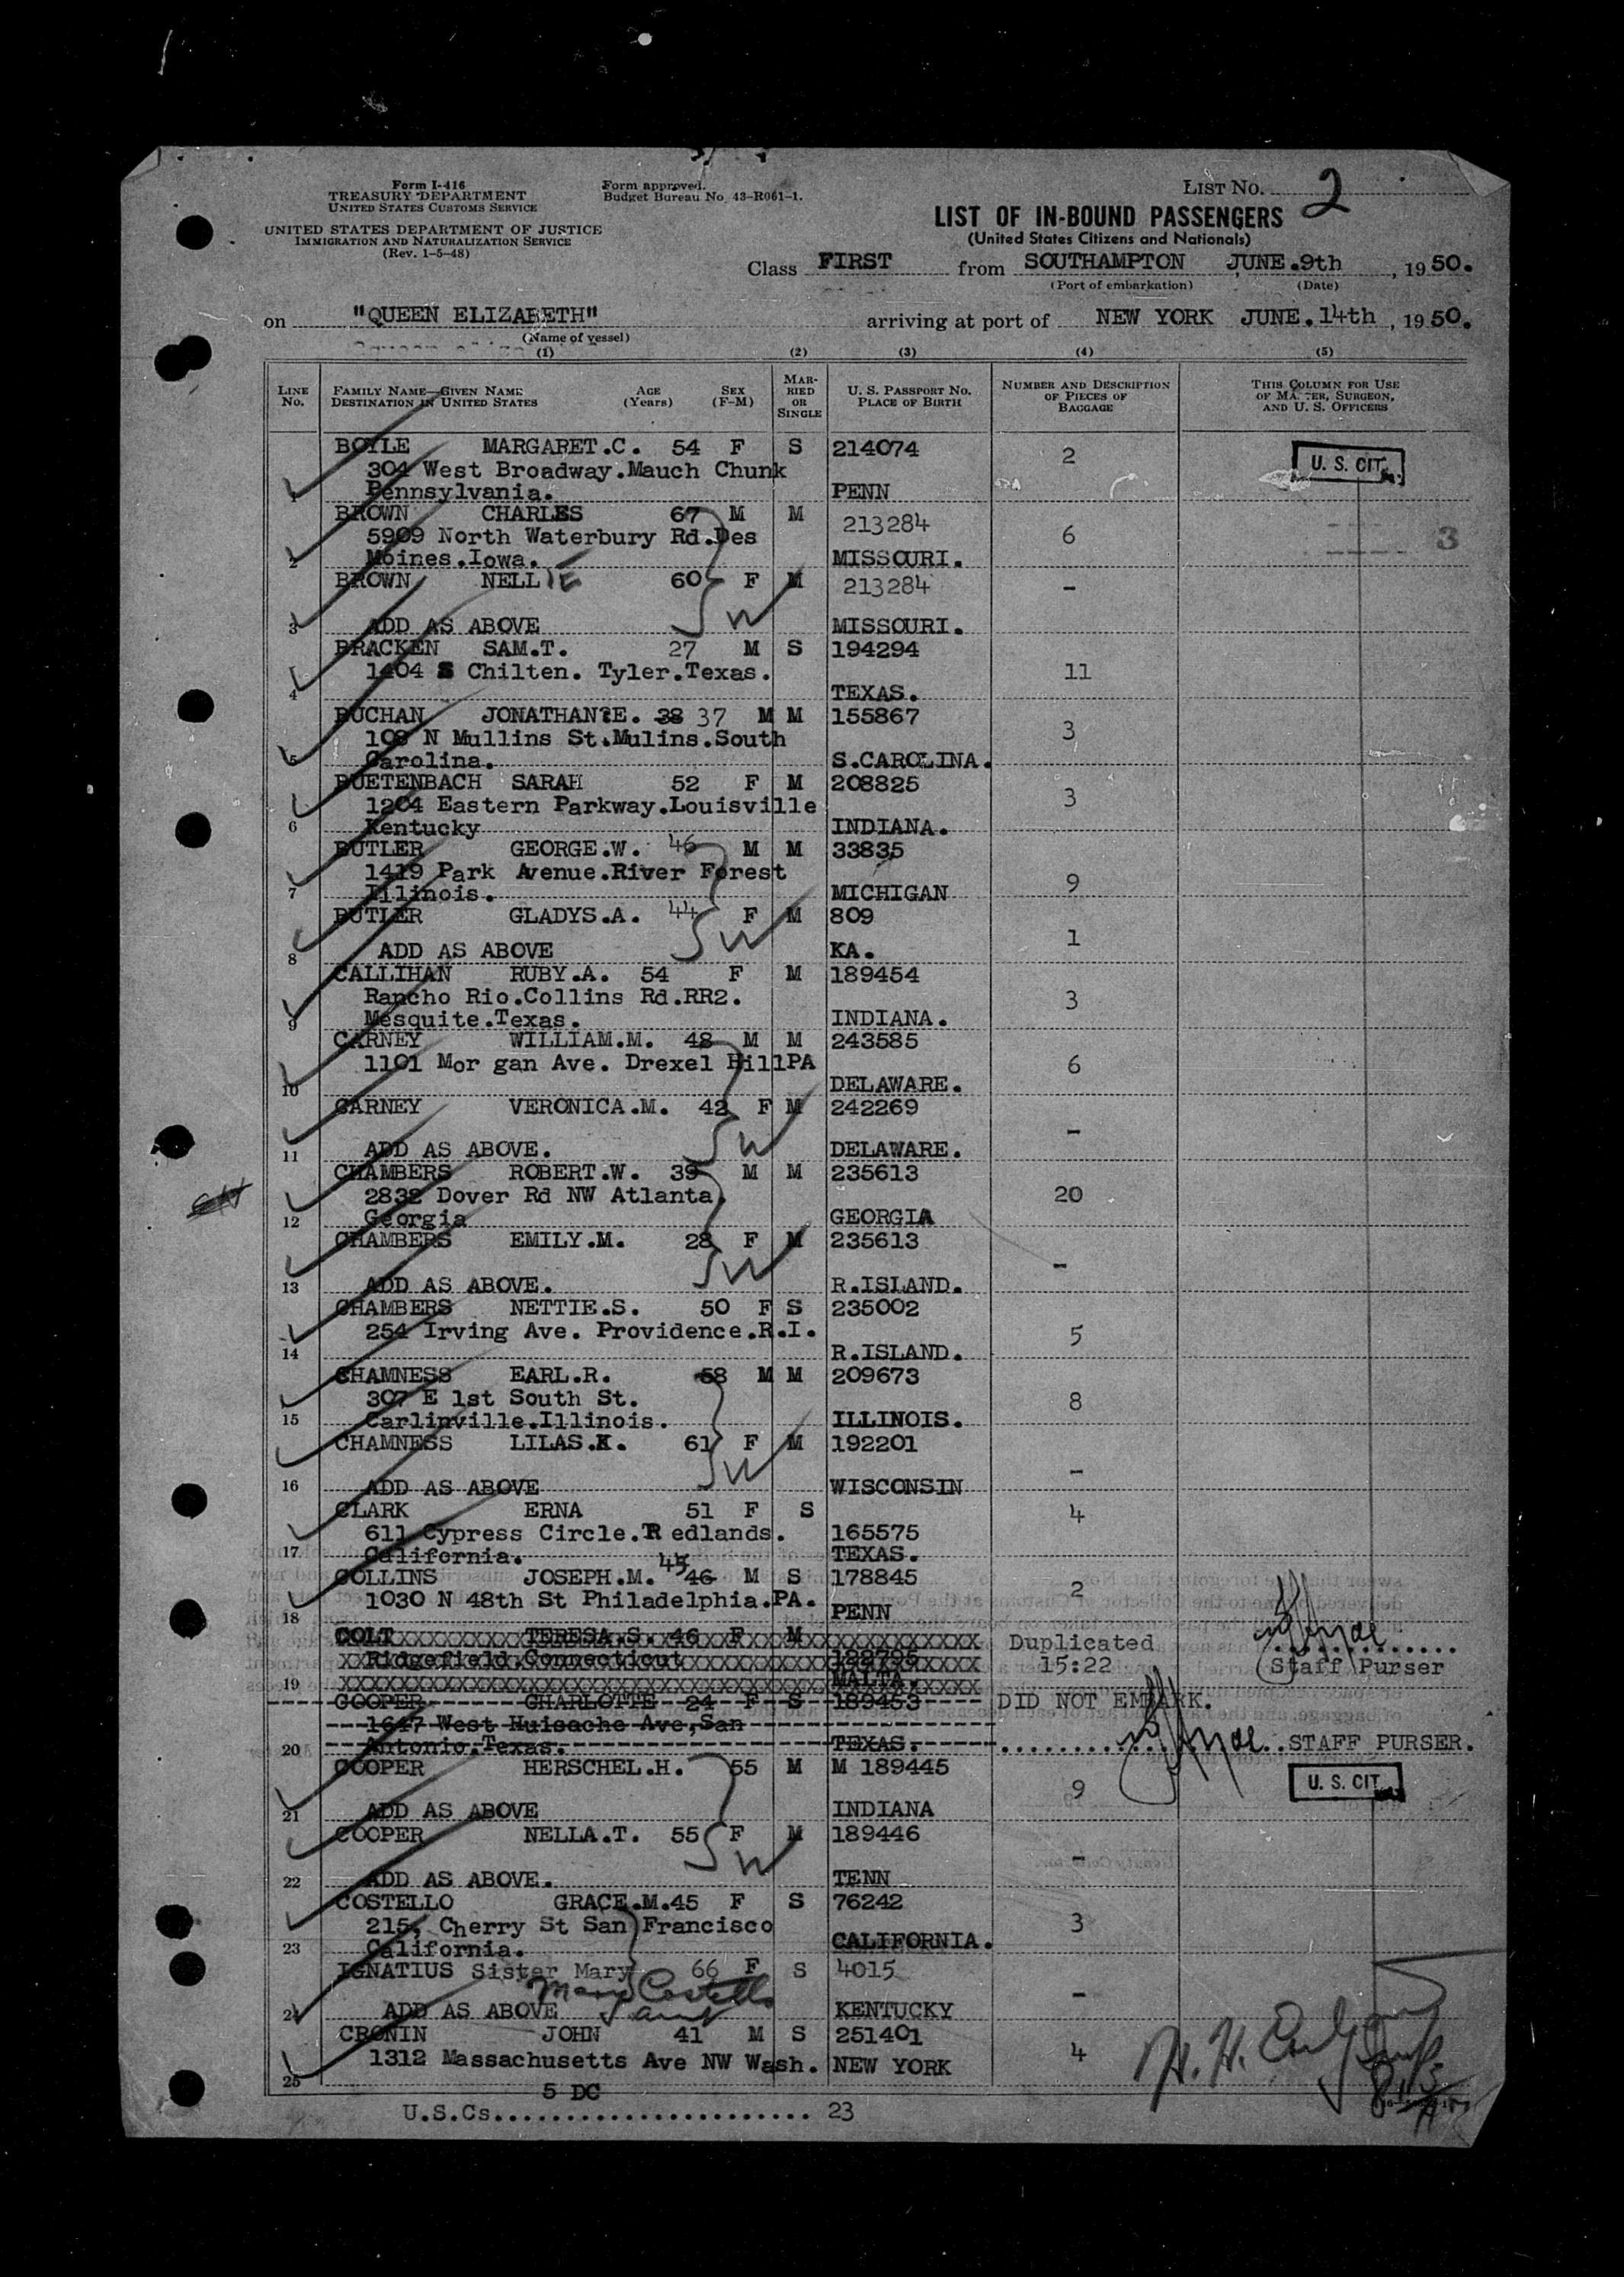 Form I-416
TREASURY DEPARTMENT
UNITED STATES CUSTOMS SERVICE
UNITED STATES DEPARTMENT OF JUSTICE
IMMIGRATION AND NATURALIZATION SERVICE
(Rev. 1-5-48)
Form approved.
Budget Bureau No. 43-R061-1.
LIST NO. 2
LIST OF IN-BOUND PASSENGERS
(United States Citizens and Nationals)
Class FIRST from SOUTHAMPTON JUNE.9th, 1950.
(Port of embarkation) (Date)
on "QUEEN ELIZABETH" arriving at port of NEW YORK JUNE.14th, 1950.
(Name of vessel)
(1) (2) (3) (4) (5)
LINE NO.
FAMILY NAME—GIVEN NAME AGE SEX
DESTINATION IN UNITED STATES (Years) (F-M)
MARRIED OR SINGLE
U. S. PASSPORT NO.
PLACE OF BIRTH
NUMBER AND DESCRIPTION
OF PIECES OF
BAGGAGE
THIS COLUMN FOR USE
OF MASTER, SURGEON,
AND U. S. OFFICERS
BOYLE MARGARET.C. 54 F S 214074 2 U. S. CIT.
304 West Broadway.Mauch Chunk
1 Pennsylvania. PENN
BROWN CHARLES 67 M M 213284 6 3
5909 North Waterbury Rd.Des
2 Moines.Iowa. MISSOURI.
BROWN NELLIE 60 F M 213284 -
W
3 ADD AS ABOVE MISSOURI.
BRACKEN SAM.T. 27 M S 194294 11
1404 S Chilten. Tyler.Texas.
4 TEXAS.
BUCHAN JONATHAN?E. 38 37 M M 155867 3
108 N Mullins St.Mulins.South
5 Carolina. S.CAROLINA.
BUETENBACH SARAH 52 F M 208825 3
1204 Eastern Parkway.Louisville
6 Kentucky INDIANA.
BUTLER GEORGE.W. 46 M M 33835 9
1419 Park Avenue.River Forest
7 Illinois. MICHIGAN
BUTLER GLADYS.A. 44 F M 809 1
W
8 ADD AS ABOVE KA.
CALLIHAN RUBY.A. 54 F M 189454 3
Rancho Rio.Collins Rd.RR2.
9 Mesquite.Texas. INDIANA.
CARNEY WILLIAM.M. 48 M M 243585 6
1101 Mor gan Ave. Drexel HillPA
10 DELAWARE.
CARNEY VERONICA.M. 42 F M 242269 -
W
11 ADD AS ABOVE. DELAWARE.
CHAMBERS ROBERT.W. 39 M M 235613 20
2832 Dover Rd NW Atlanta.
12 Georgia GEORGIA
CHAMBERS EMILY.M. 28 F M 235613 -
W
13 ADD AS ABOVE. R.ISLAND.
CHAMBERS NETTIE.S. 50 F S 235002 5
254 Irving Ave. Providence.R.I.
14 R.ISLAND.
CHAMNESS EARL.R. 58 M M 209673 8
307 E 1st South St.
15 Carlinville.Illinois. ILLINOIS.
CHAMNESS LILAS.K. 61 F M 192201 -
W
16 ADD AS ABOVE WISCONSIN
CLARK ERNA 51 F S 4
611 Cypress Circle.R edlands. 165575
17 California. TEXAS.
COLLINS JOSEPH.M. 45 46 M S 178845 2
1030 N 48th St Philadelphia.PA.
18 PENN
COLT TERESA.S. 46 F M Duplicated
Ridgefield.Connecticut 15:22 Staff Purser
19 MALTA.
COOPER CHARLOTTE 24 F S 189453 DID NOT EMBARK.
1647 West Huisache Ave,San
20 Antonio.Texas. TEXAS. STAFF PURSER.
COOPER HERSCHEL.H. 55 M M 189445 9 U. S. CIT.
21 ADD AS ABOVE INDIANA
COOPER NELLA.T. 55 F M 189446 -
W
22 ADD AS ABOVE. TENN
COSTELLO GRACE.M.45 F S 76242 3
215, Cherry St San Francisco
23 California. CALIFORNIA.
IGNATIUS Sister Mary 66 F S 4015 -
Mary Costello
24 ADD AS ABOVE aunt KENTUCKY
CRONIN JOHN 41 M S 251401 4
1312 Massachusetts Ave NW Wash. NEW YORK
25
5 DC
U.S.Cs....................... 23